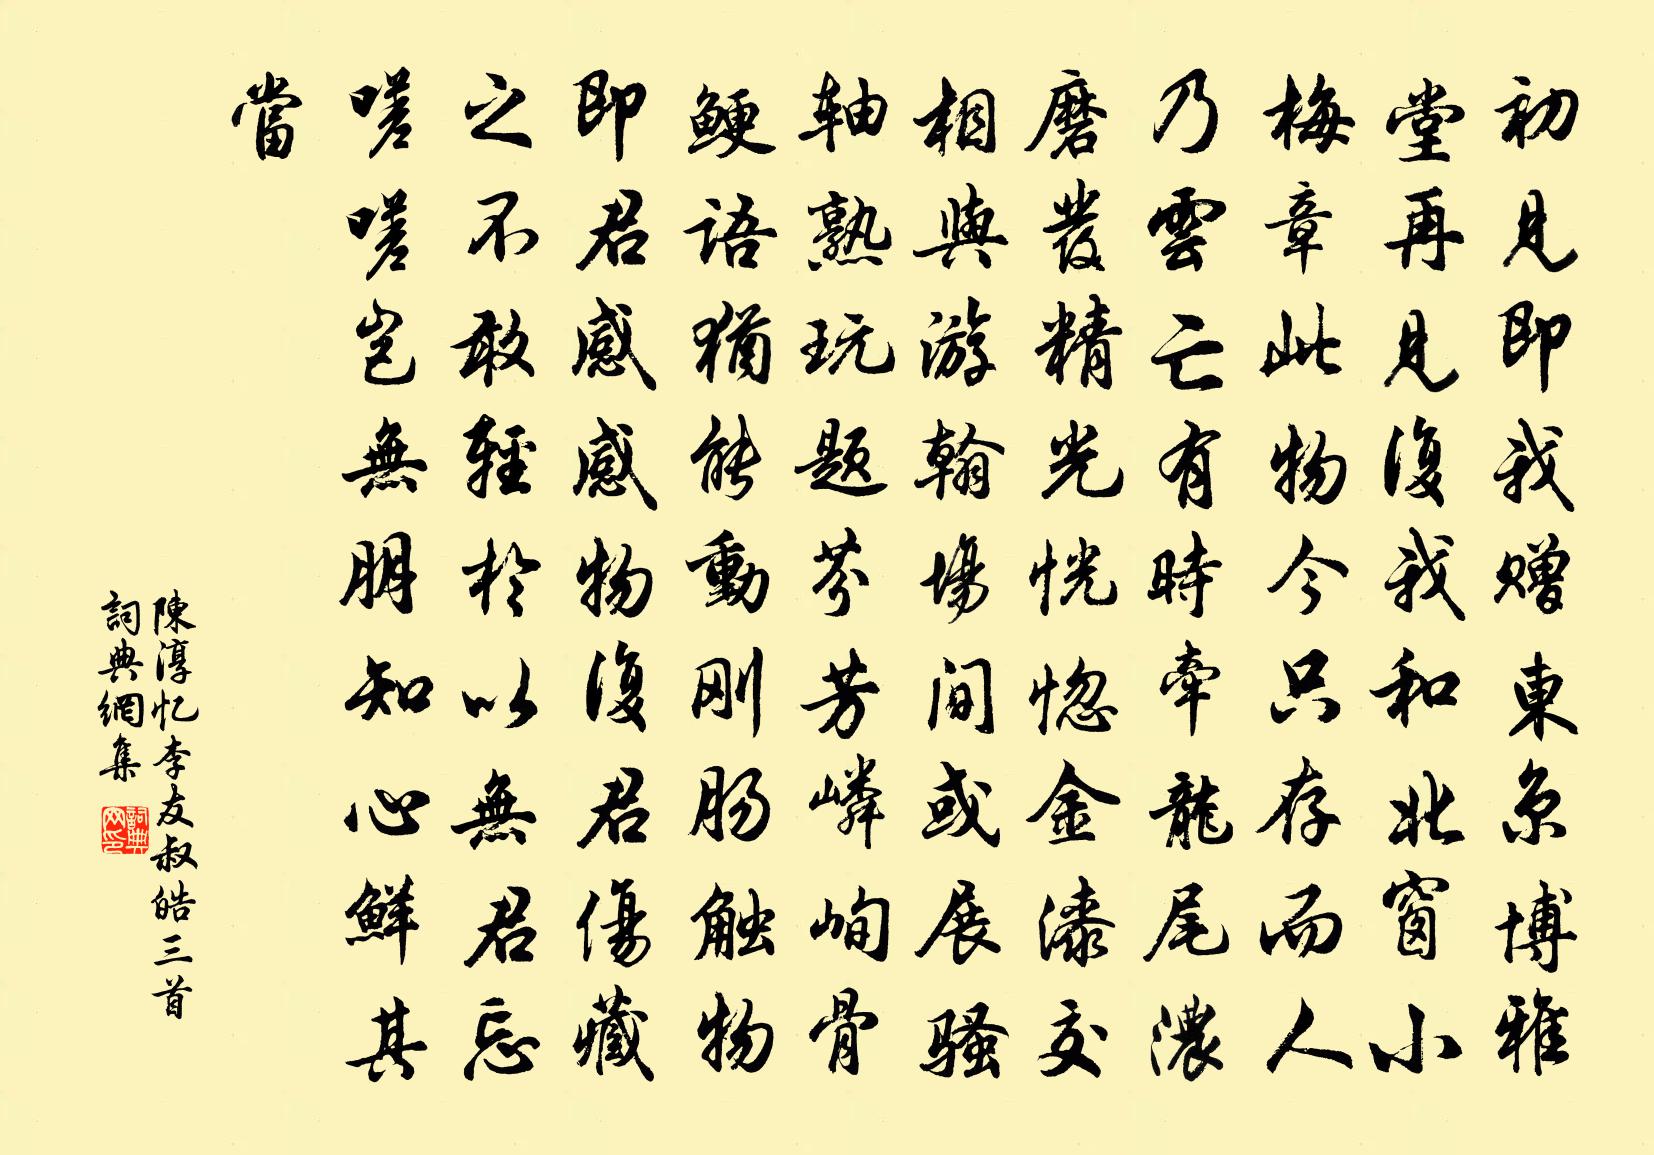 初見即我贈東京博雅
堂再見復我和北窗小
梅章此物今只存而人
乃雲亡有時牽龍尾濃
磨發精光恍惚金漆交
相與游翰場間或展騷
軸熟玩题芬芳嶙峋骨
鲠語猶能動刚肠触物
即君感感物復君傷藏
之不敢輕於以無君忘
嗟嗟豈無朋知心鮮其
當
陳淳忆李友叔皓三首
詞典網集